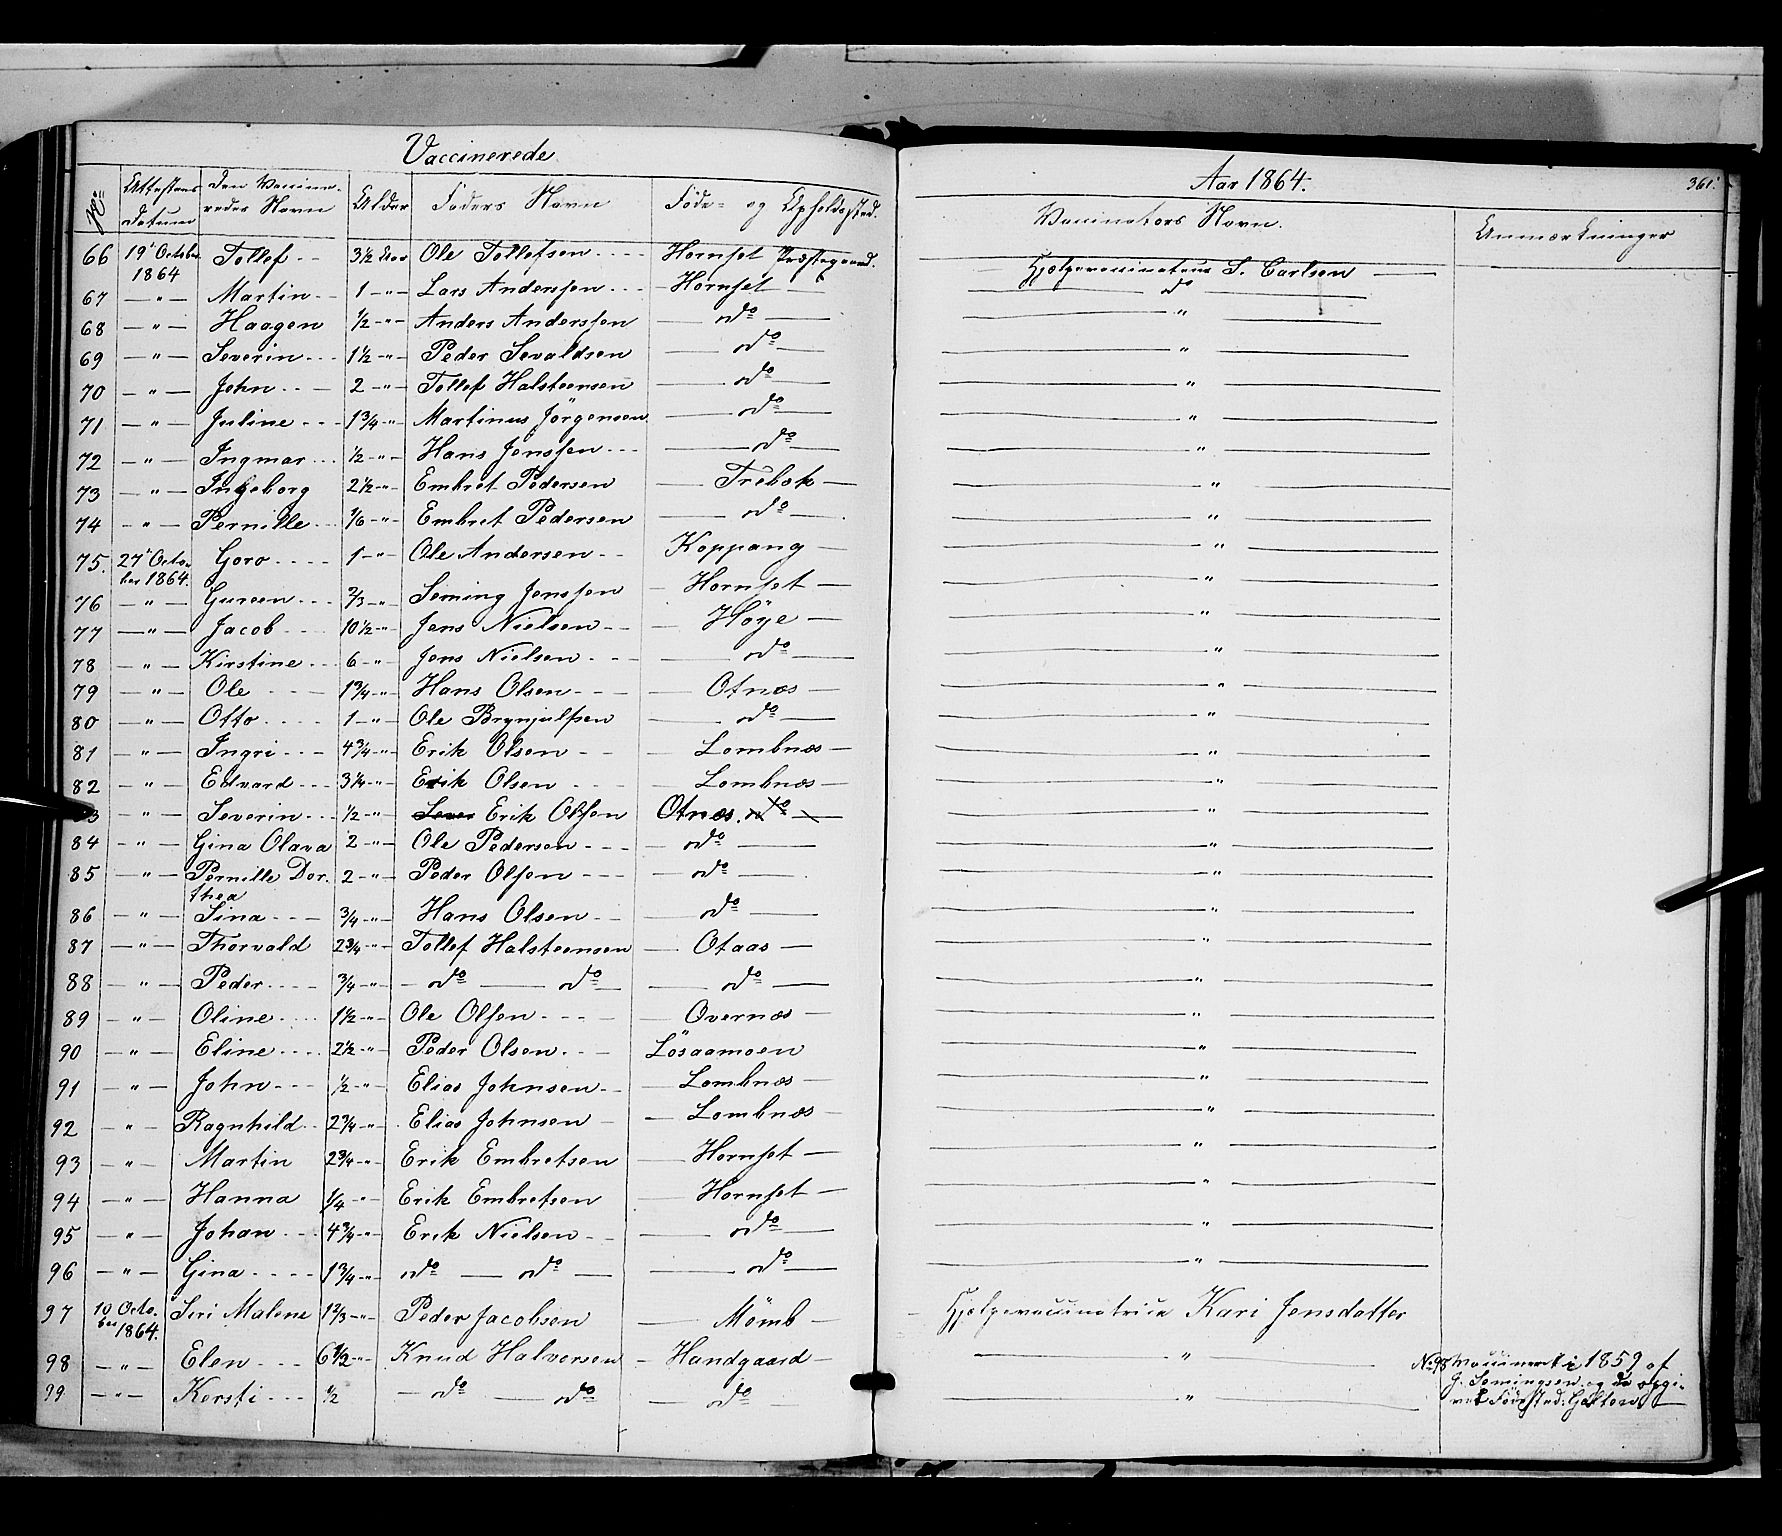 Vaccinerede
Aar 1864.
361.
No. Attestens Datum Den Vaccineredes Navn Alder Faders Navn Føde- og Opholdssted. Vaccinators Navn. Anmærkninger
66 19de October 1864 Tollef 3½ Aar Ole Tollefsen Hornset Præstegaard. Hjælpevaccinateur S. Carlsen
67 — " — Martin 1 — " Lars Anderssen Hornset do
68 — " — Haagen ½ — " Anders Anderssen do "
69 — " — Severin 1½ — " Peder Sevaldsen do "
70 — " — John 2 — " Tollef Halsteensen do "
71 — " — Juline 1¾ — " Martinus Jörgensen do "
72 — " — Ingmar ½ — " Hans Jenssen do "
73 — " — Ingeborg 2½ — " Embret Pedersen Trebæk "
74 — " — Pernille 1/6 — " Embret Pedersen do "
75. 27de October 1864. Goro 1 — " Ole Andersen Koppang "
76 — " — Gureen 2/3 — " Seming Jenssen Hornset "
77 — " — Jacob 10½ — " Jens Nielsen Høye "
78 — " — Kirstine 6 — " Jens Nielsen do "
79 — " — Ole 1¾ — " Hans Olsen Otnæs "
80 — " — Otto 1 — " Ole Brynjulfsen do "
81 — " — Ingri 4¾ — " Erik Olsen Lombnæs "
82 — " — Edvard 3¼ — " Erik Olsen Lombnæs "
83 — " — Severin ½ — " Sever Erik Olssen Otnæs. do "
84 — " — Gina Olava 2 — " Ole Pedersen do "
85 — " — Pernille Dorthea 2 — " Peder Olsen do "
86 — " — Sina ¾ — " Hans Olsen do "
87 — " — Thorvald 2¾ — " Tollef Halsteensen Otaas "
88 — " — Peder ¾ — " do do do "
89 — " — Oline 1½ — " Ole Olsen Overnæs "
90 — " — Eline 2½ — " Peder Olsen Lösaamoen "
91 — " — John ½ — " Elias Johnsen Lombnæs "
92 — " — Ragnhild 2¾ — " Elias Johnsen Lombnæs "
93 — " — Martin 2¾ — " Erik Embretsen Hornset "
94 — " — Hanna ¼ — " Erik Embretsen Hornset "
95 — " — Johan 4¾ — " Erik Nielsen do "
96 — " — Gina 1¾ — " do do do "
97 10 October 1864. Siri Malene 1 2/3 — " Peder Jacobsen Mömb Hjælpevaccinatrice Kari Jensdatter
98 — " — Elen 6½ — " Knud Halvorsen Handgaard " No 98 Vaccineret i 1859 af
G. Semingsen og da opgivet Födested:
99 — " — Kersti ½ do do do "